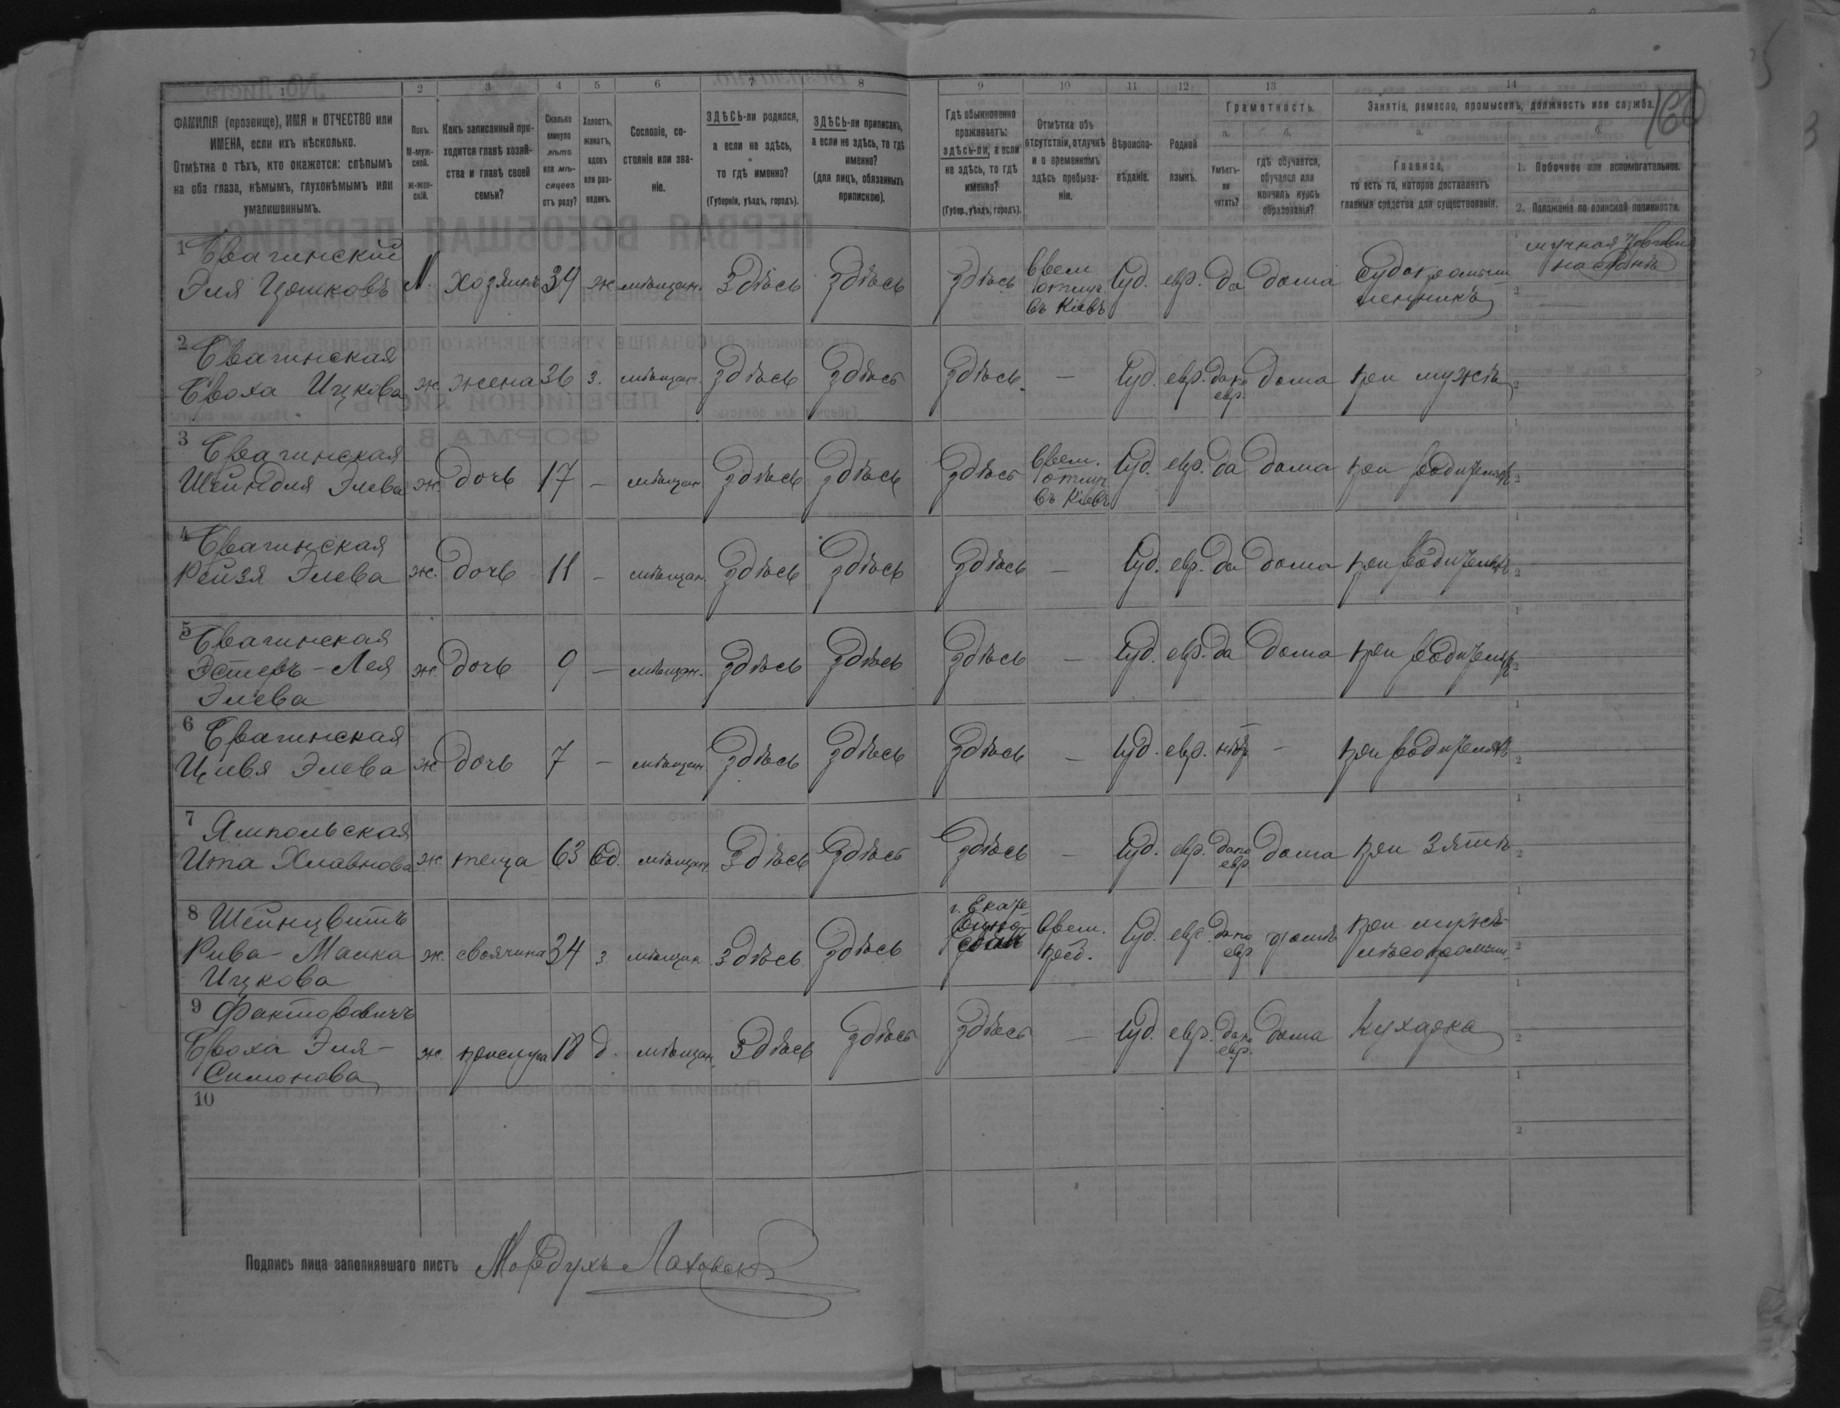 1 2 3 4 5 6 7 8 9 10 11 12 13 14
ФАМИЛІЯ (прозвище), ИМЯ и ОТЧЕСТВО или
ИМЕНА, если ихъ нѣсколько.
Отмѣтка о тѣхъ, кто окажется: слѣпымъ
на оба глаза, нѣмымъ, глухонѣмымъ или
умалишеннымъ.
Полъ.
М-муж-
ской.
ж-жен-
скій.
Какъ записанный при-
ходится главѣ хозяй-
ства и главѣ своей
семьи?
Сколько
минуло
лѣтъ
или мѣ-
сяцевъ
отъ роду?
Холостъ,
женатъ,
вдовъ
или раз-
веденъ.
Сословіе, со-
стояніе или зва-
ніе.
ЗДѢСЬ-ли родился,
а если не здѣсь,
то гдѣ именно?
(Губернія, уѣздъ, городъ).
ЗДѢСЬ-ли приписанъ,
а если не здѣсь, то гдѣ
именно?
(для лицъ, обязанныхъ
припискою).
Гдѣ обыкновенно
проживаетъ:
здѣсь-ли, а если
не здѣсь, то гдѣ
именно?
(Губер., уѣздъ, городъ).
Отмѣтка объ
отсутствіи, отлучкѣ
и о временномъ
здѣсь пребыва-
ніи.
Вѣроиспо-
вѣданіе.
Родной
языкъ.
Грамотность.
а. б.
Умѣетъ-
ли
читать?
гдѣ обучается,
обучался или
кончилъ курсъ
образованія?
Занятіе, ремесло, промыселъ, должность или служба.
а. б.
Главное,
то есть то, которое доставляетъ
главныя средства для существованія.
1. Побочное или вспомогательное.
2. Положеніе по воинской повинности.
1 Звагинскій
Эля Ицковъ М. хозяинъ 34 ж мѣщан. Здѣсь здѣсь здѣсь Врем. отлуч. въ Кіевъ Іуд. евр. да дома
мучная торговля
2 Звагинская
Ицкова ж. жена 36 з. мѣщан. здѣсь здѣсь здѣсь — Іуд. евр. да по евр. дома при мужѣ
3 Звагинская
Шейндля Элева ж. дочь 17 — мѣщан здѣсь здѣсь здѣсь Врем. отлуч въ Кіевъ Іуд. евр. да дома при родителяхъ
4 Звагинская
Рейзя Элева ж. дочь 11 — мѣщан. здѣсь здѣсь здѣсь — Іуд. евр. да дома при родителяхъ
5 Звагинская
Эстеръ-Лея
Элева ж. дочь 9 — мѣщан. здѣсь здѣсь здѣсь — Іуд. евр. да дома при родителяхъ
6 Звагинская
Цивя Элева ж дочь 7 — мѣщан здѣсь здѣсь здѣсь — Іуд. евр. нѣтъ — при родителяхъ
7 Ямпольская
Ита Хлавнова ж. теща 63 вд. мѣщан. Здѣсь здѣсь здѣсь — Іуд. евр. да по евр. дома при зятѣ
8 Шейнцвитъ
Рива-Малка
Ицкова ж. своячина 34 з мѣщан. здѣсь здѣсь Врем. преб. Іуд. евр. да по евр. при мужѣ
9 Факторовичъ
Симонова ж. прислуга 18 д. мѣщан. Здѣсь здѣсь здѣсь — Іуд. евр. да по евр. дома Кухарка
10
Подпись лица заполнявшаго листъ Мордухъ